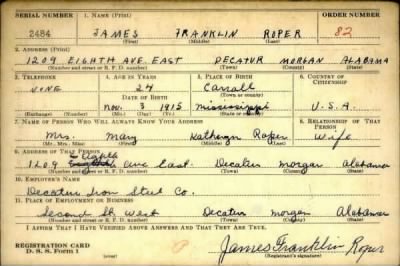 SERIAL NUMBER 1. NAME (Print) ORDER NUMBER
2484 JAMES FRANKLIN ROPER 82
(First) (Middle) (Last)
2. ADDRESS (Print)
1209 EIGHTH AVE. EAST DECATUR MORGAN ALABAMA
(Number and street or R. F. D. number) (Town) (County) (State)
3. TELEPHONE 4. AGE IN YEARS 5. PLACE OF BIRTH 6. COUNTRY OF CITIZENSHIP
NONE 24 Carroll
DATE OF BIRTH (Town or county)
Nov. 3 1915 Mississippi U.S.A.
(Exchange) (Number) (Mo.) (Day) (Yr.) (State or country)
7. NAME OF PERSON WHO WILL ALWAYS KNOW YOUR ADDRESS 8. RELATIONSHIP OF THAT PERSON
Mrs. Mary Kathryn Roper Wife
(Mr., Mrs., Miss) (First) (Middle) (Last)
9. ADDRESS OF THAT PERSON
Eighth
1209 Ave East. Decatur Morgan Alabama
(Number and street or R. F. D. number) (Town) (County) (State)
10. EMPLOYER'S NAME
Decatur Iron Steel Co.
11. PLACE OF EMPLOYMENT OR BUSINESS
Second St West Decatur Morgan Alabama
(Number and street or R. F. D. number) (Town) (County) (State)
I AFFIRM THAT I HAVE VERIFIED ABOVE ANSWERS AND THAT THEY ARE TRUE.
REGISTRATION CARD
D. S. S. Form 1 James Franklin Roper
(Registrant's signature)